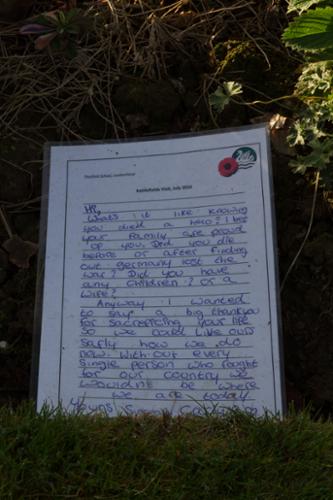 Battlefields Visit, July 2010
Hi,
What's it like knowing
you died a hero? I bet
your family are proud
of you. Did you die
before or after finding
out germany lost the
war? Did you have
any children? or a
wife?
Anyway I wanted
to say a big thankyou
for sacreficing your life
so we could live ours
safly how we do
now. With out every
single person who fought
for our country we
wouldn't be where
we are today